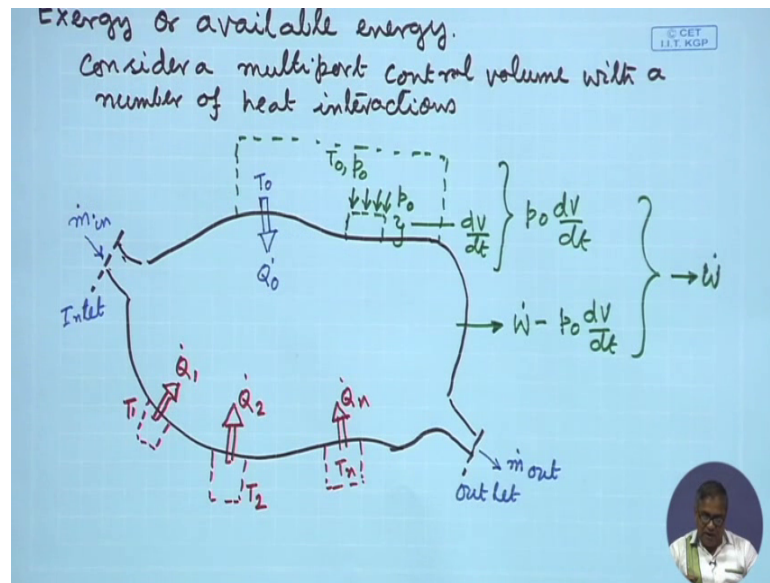 Exergy or available energy.
© CET
I.I.T. KGP
Consider a multiport control volume with a
number of heat interactions
T₀, p₀
T₀
p₀
dV/dt
p₀ dV/dt
Ẇ
ṁ in
Q̇₀
Inlet
Ẇ - p₀ dV/dt
Q̇₁
Q̇₂
Q̇n
T₁
Tn
T₂
ṁ out
Outlet